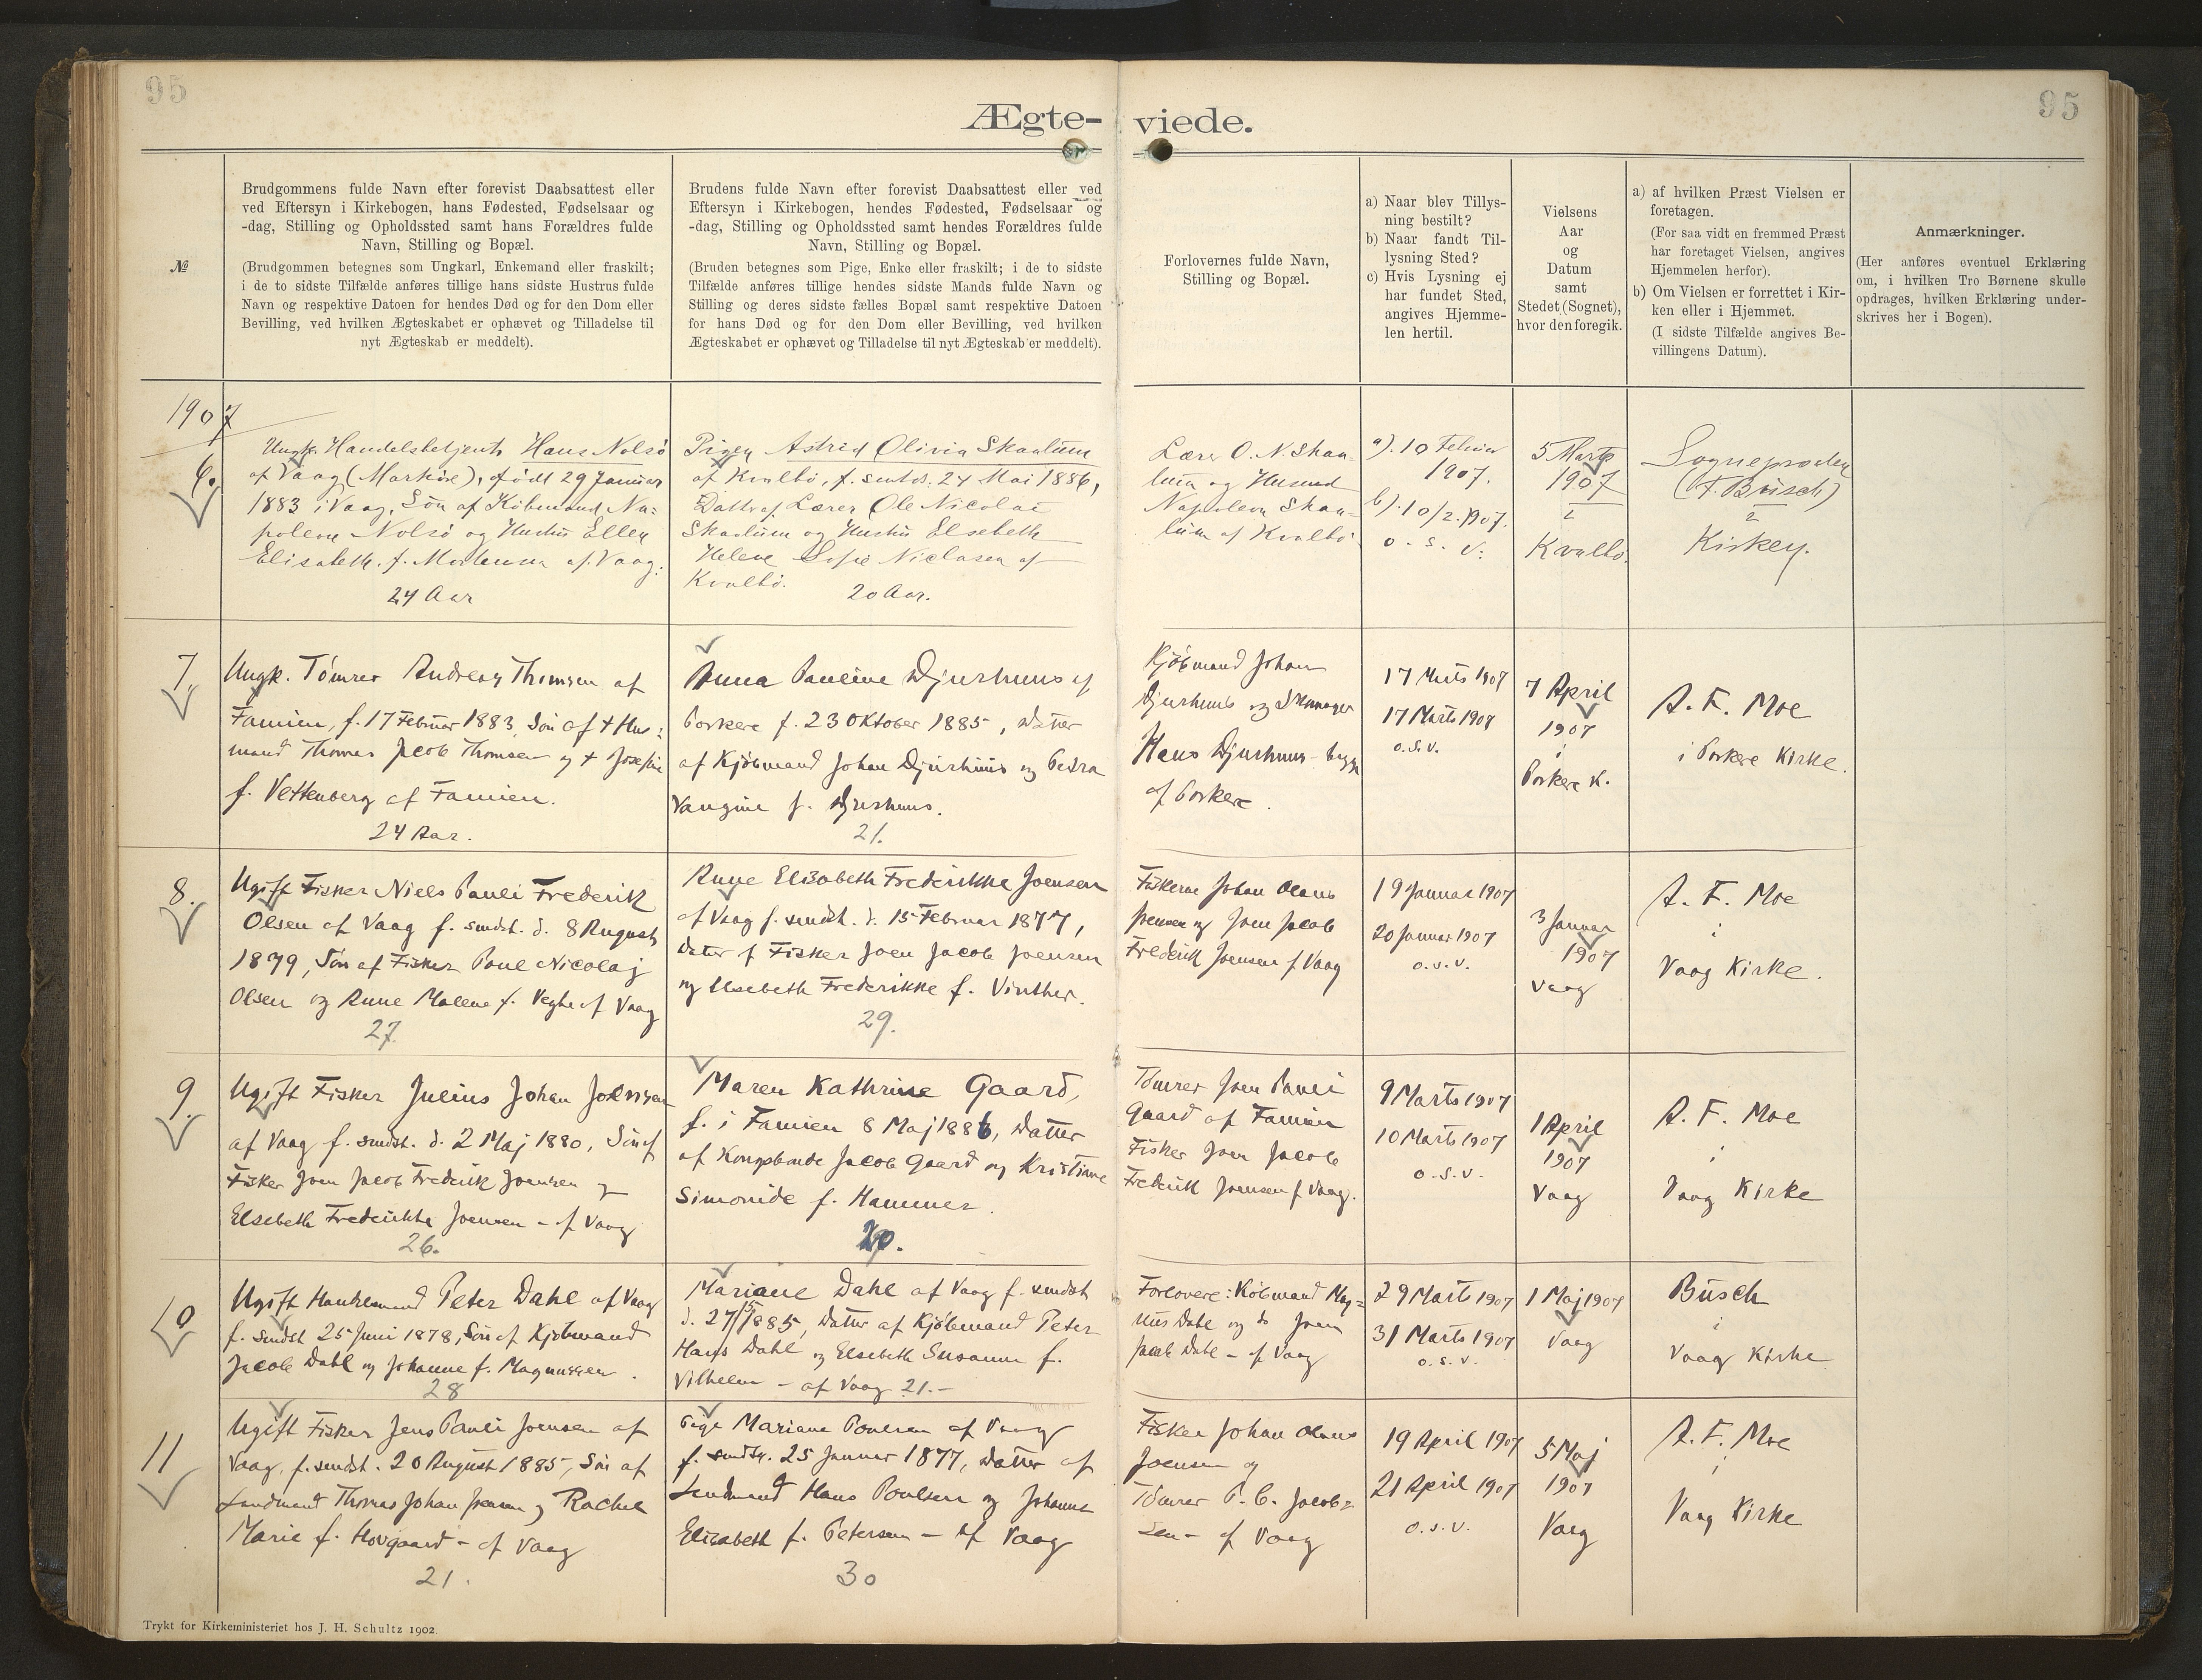 95
95
Ægte-
viede.
№
Brudgommens fulde Navn efter forevist Daabsattest eller
ved Eftersyn i Kirkebogen, hans Fødested, Fødselsaar og
-dag, Stilling og Opholdssted samt hans Forældres fulde
Navn, Stilling og Bopæl.
(Brudgommen betegnes som Ungkarl, Enkemand eller fraskilt;
i de to sidste Tilfælde anføres tillige hans sidste Hustrus fulde
Navn og respektive Datoen for hendes Død og for den Dom eller
Bevilling, ved hvilken Ægteskabet er ophævet og Tilladelse til
nyt Ægteskab er meddelt).
Brudens fulde Navn efter forevist Daabsattest eller ved
Eftersyn i Kirkebogen, hendes Fødested, Fødselsaar og
-dag, Stilling og Opholdssted samt hendes Forældres fulde
Navn, Stilling og Bopæl.
(Bruden betegnes som Pige, Enke eller fraskilt; i de to sidste
Tilfælde anføres tillige hendes sidste Mands fulde Navn og
Stilling og deres sidste fælles Bopæl samt respektive Datoen
for hans Død og for den Dom eller Bevilling, ved hvilken
Ægteskabet er ophævet og Tilladelse til nyt Ægteskab er meddelt).
Forlovernes fulde Navn,
Stilling og Bopæl.
a) Naar blev Tillys-
ning bestilt?
b) Naar fandt Til-
lysning Sted?
c) Hvis Lysning ej
har fundet Sted,
angives Hjemme-
len hertil.
Vielsens
Aar
og
Datum
samt
Stedet (Sognet),
hvor den foregik.
a) af hvilken Præst Vielsen er
foretagen.
(For saa vidt en fremmed Præst
har foretaget Vielsen, angives
Hjemmelen herfor).
b) Om Vielsen er forrettet i Kir-
ken eller i Hjemmet.
(I sidste Tilfælde angives Be-
villingens Datum).
Anmærkninger.
(Her anføres eventuel Erklæring
om, i hvilken Tro Børnene skulle
opdrages, hvilken Erklæring under-
skrives her i Bogen).
1907
6.
Ungk. Handelsbetjent Hans Nolsö
af Vaag (Marköre), født 29 Januar
1883 i Vaag, Søn af Köbmand Na-
poleon Nolsö og Hustru Ellen
Elisabeth f. Mortensen af Vaag.
24 Aar
Pigen Astrid Olivia Skaalum
af Kvalbö, f. smstds. 24 Mai 1886,
Datter af Lærer Ole Nicolai
Skaalum og Hustru Elsebeth
Helene Sofie Niclasen af
Kvalbö.
20 Aar.
Lærer O. N. Skaa-
lum og Husmd
Napoleon Skaa-
lum af Kvalbö
a). 10 Februar
1907.
b). 10/2. 1907.
o. s. v.
5 Marts
1907
i
Kvalbö.
Sogneprsten
(F. Büsch)
i
Kirken.
7.
Ungk. Tömrer Andreas Thomsen af
Famien, f. 17 Februar 1883, Søn af + Hus-
mand Thomas Jacob Thomsen og + Josefine
f. Vettenberg af Famien.
24 Aar.
Anna Pauline Djurhuus af
Porkere f. 23 Oktober 1885, Datter
af Kjöbmand Johan Djurhuus og Petra
f. Djurhuus.
21.
Kjöbmand Johan
Djurhuus og
Hans Djurhuus
af Porkere.
17 Marts 1907
17 Marts 1907
o.s.v.
7 April
1907
i
Porkere K.
A. F. Moe
i Porkere Kirke.
8.
Ugift Fisker Niels Pauli Frederik
Olsen af Vaag f. smdst. d. 8 August
1879, Søn af Fisker Poul Nicolaj
Olsen og Anne Malene f. Veyhe af Vaag
27.
Anne Elisabeth Frederikke Joensen
af Vaag f. smdst. d. 15 Februar 1877,
Datter af Fisker Joen Jacob Joensen
og Elsebeth Frederikke f. Vinther.
29.
Fiskerne Johan Olaus
Joensen og Joen Jacob
Frederik Joensen af Vaag
19 Januar 1907
20 Januar 1907
o.s.v.
3 Januar
1907
Vaag
A. F. Moe
i
Vaag Kirke.
9.
Ugift Fisker Julius Johan Joensen
af Vaag f. smdst. d. 2 Maj 1880, Søn af
Fisker Joen Jacob Frederik Joensen og
Elsebeth Frederikke Joensen - af Vaag
26.
Maren Kathrine Gaard,
f. i Famien 8 Maj 1886, Datter
af Kongsbonde Jacob Gaard og Kristiane
Simonide f. Hammer.
20.
Tömrer Joen Pauli
Gaard af Famien
Fisker Joen Jacob
Frederik Joensen af Vaag.
9 Marts 1907
10 Marts 1907
o.s.v.
1 April
1907
Vaag
A. F. Moe
i
Vaag Kirke
10
Ugift Handelsmand Peter Dahl af Vaag
f. smdst 25 Juni 1878, Søn af Kjöbmand
Jacob Dahl og Johanne f. Magnussen.
28
Mariane Dahl af Vaag f. smdst
d. 27/5 1885, Datter af Kjöbmand Peter
Hans Dahl og Elsebeth Susanne f.
Vilhelm - af Vaag 21.-
Forlovere: Köbmand Mag-
nus Dahl og do Joen
Jacob Dahl - af Vaag
29 Marts 1907
31 Marts 1907
o.s.v.
1 Maj 1907
Vaag
Büsch
i
Vaag Kirke
11
Ugift Fisker Jens Pauli Joensen af
Vaag, f. smdst. 20 August 1885, Søn af
Landmand Thomas Johan Joensen og Rachel
Marie f. Hovgaard - af Vaag
21.
Pige Mariane Poulsen af Vaag
f. smdst. 25 Januar 1877, Datter af
Landmand Hans Poulsen og Johanne
Elisabeth f. Petersen - af Vaag
30
Fisker Johan Olaus
Joensen og
Tömrer P. C. Jacob-
sen - af Vaag
19 April 1907
21 April 1907
o.s.v.
5 Maj
1907
Vaag
A. F. Moe
i
Vaag Kirke
Trykt for Kirkeministeriet hos J. H. Schultz 1902